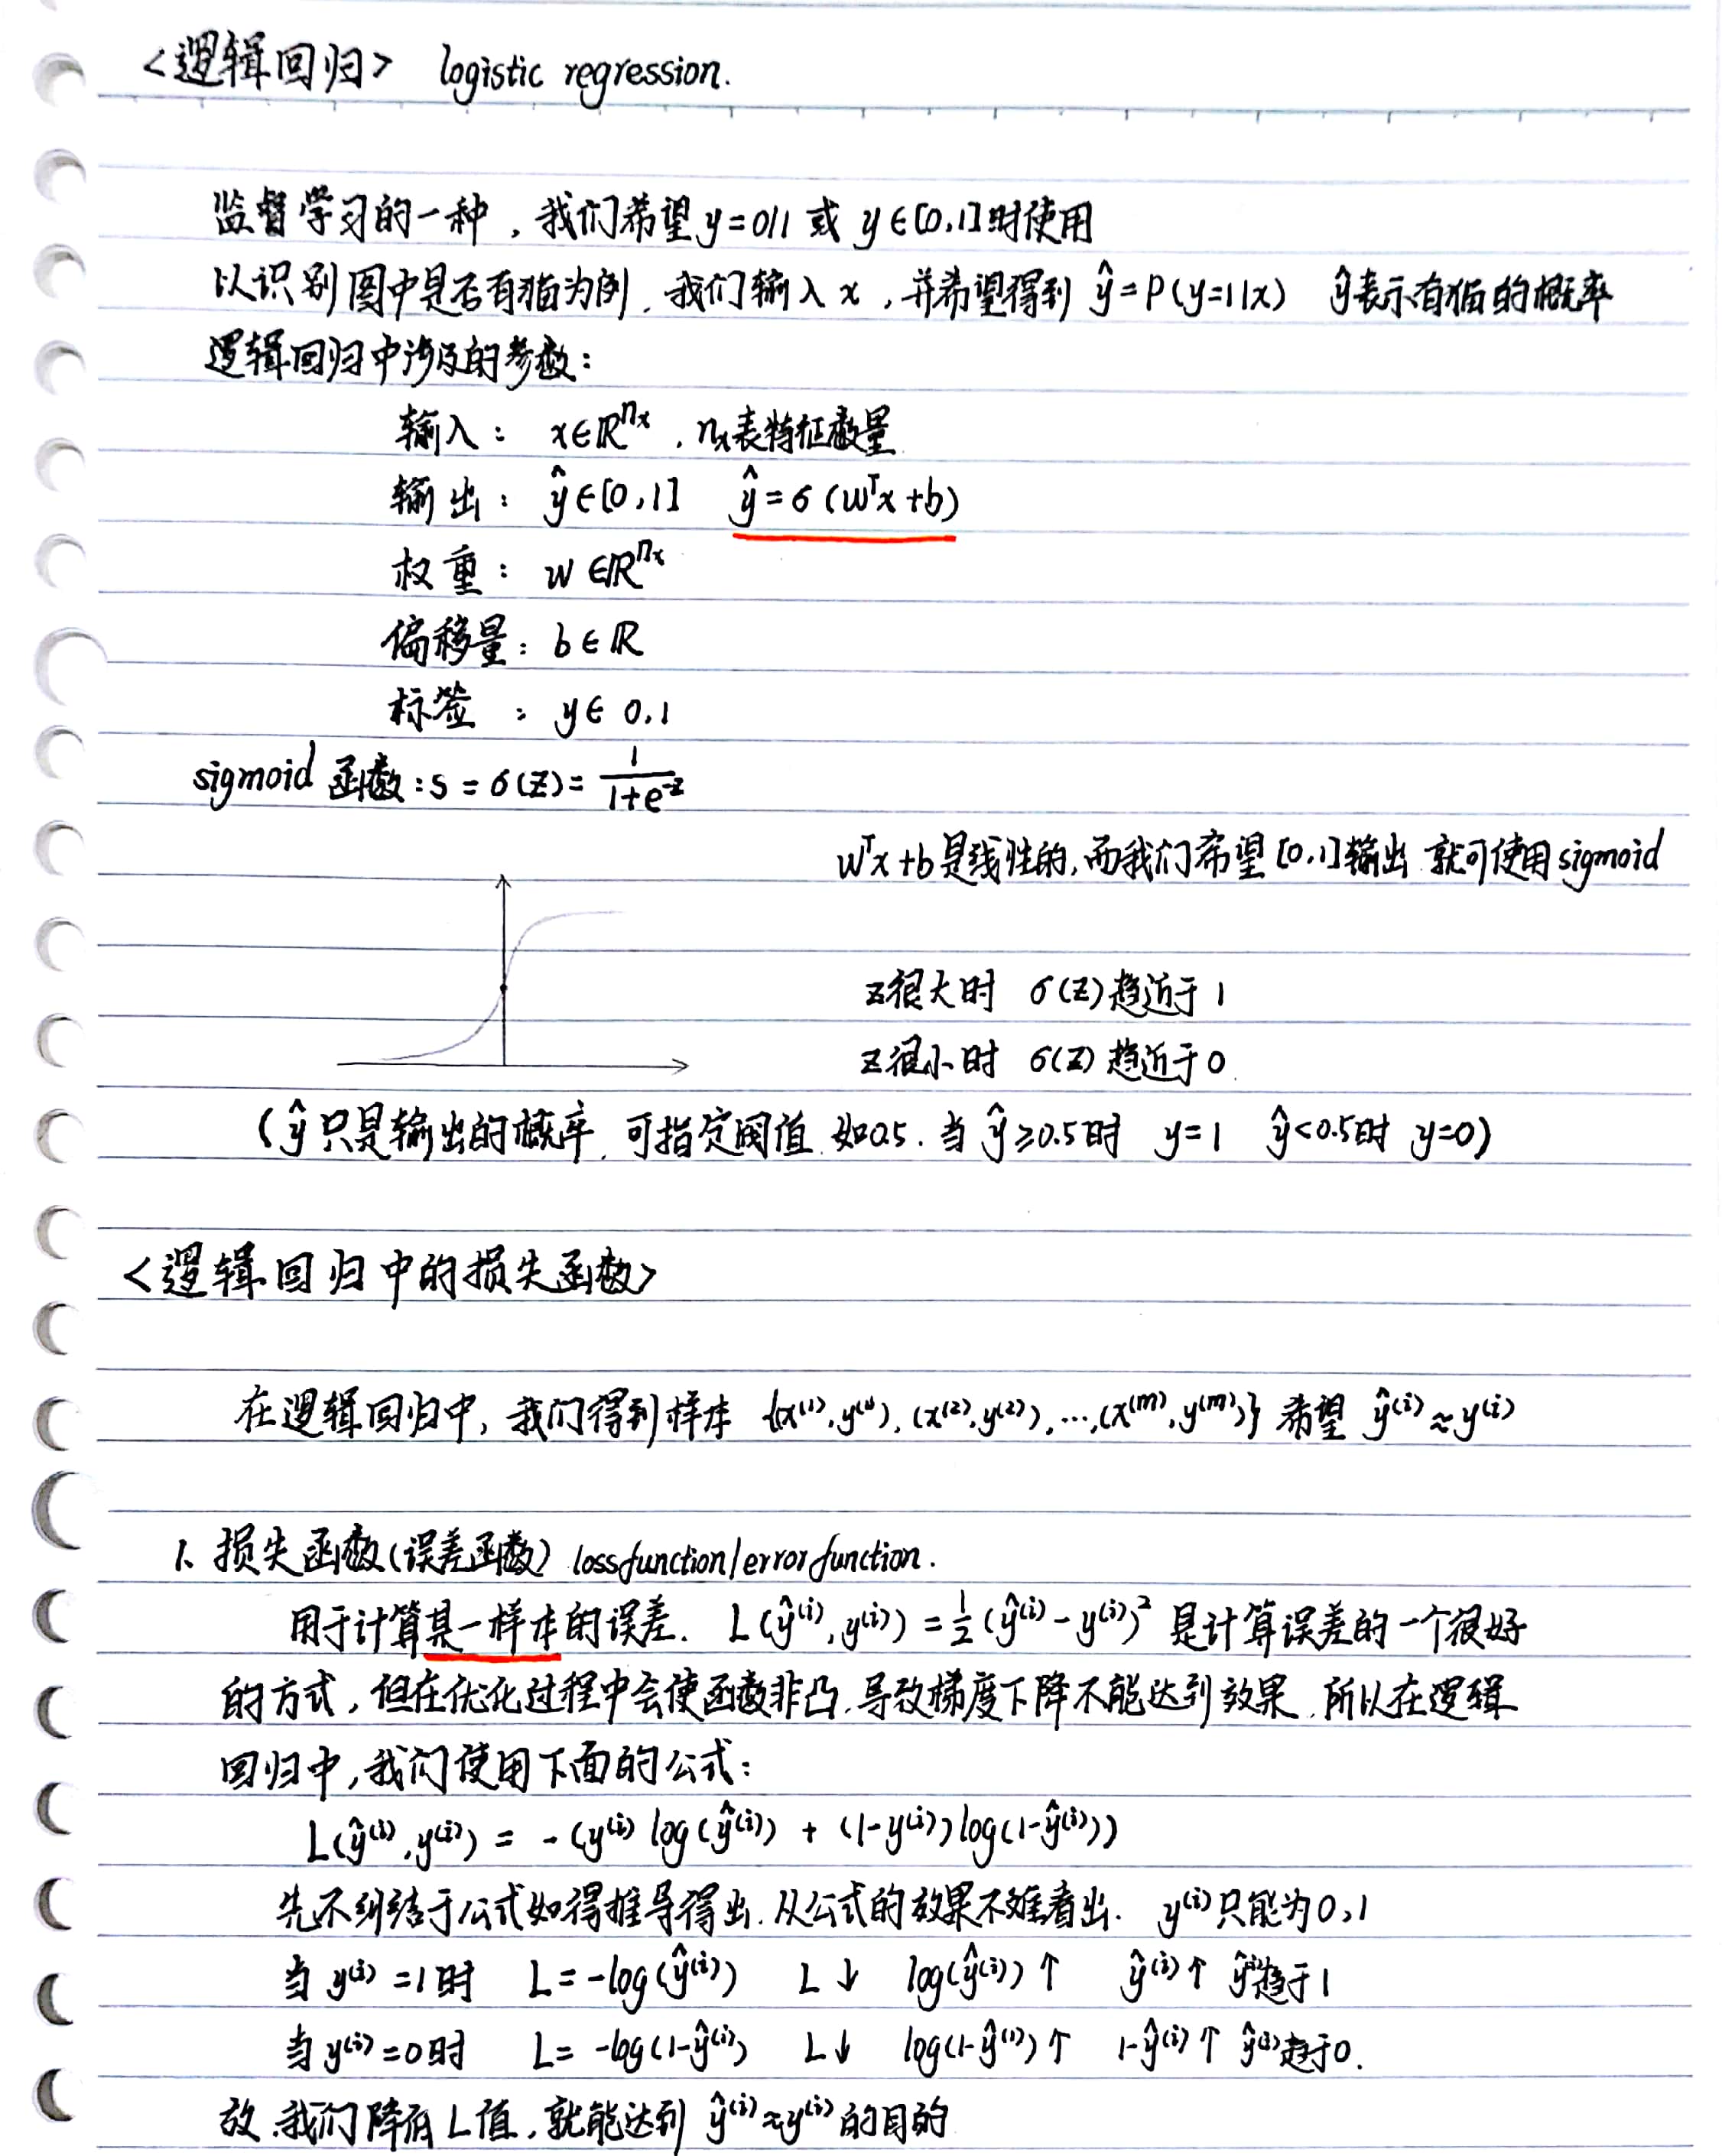 <逻辑回归> logistic regression.
监督学习的一种，我们希望 y=0/1 或 y∈[0,1]时使用
以识别图中是否有猫为例，我们输入 x，并希望得到 ŷ=P(y=1|x) ŷ表示有猫的概率
逻辑回归中涉及的参数：
输入： x∈ℝⁿˣ，nₓ表特征数量
输出： ŷ∈[0,1] ŷ=σ(wᵀx+b)
权重： w∈ℝⁿˣ
偏移量：b∈ℝ
标签 ： y∈ 0,1
sigmoid 函数：s = σ(z)= 1/(1+e^-z)
wᵀx+b是线性的，而我们希望[0,1]输出 就可使用sigmoid
z很大时 σ(z)趋近于1
z很小时 σ(z)趋近于0.
(ŷ只是输出的概率，可指定阈值 如0.5. 当 ŷ≥0.5时 y=1 ŷ<0.5时 y=0)
<逻辑回归中的损失函数>
在逻辑回归中，我们得到样本 {(x⁽¹⁾,y⁽¹⁾),(x⁽²⁾,y⁽²⁾),…,(x⁽ᵐ⁾,y⁽ᵐ⁾)} 希望 ŷ⁽ⁱ⁾≈y⁽ⁱ⁾
1. 损失函数(误差函数) loss function/error function.
用于计算某一样本的误差. L(ŷ⁽ⁱ⁾,y⁽ⁱ⁾)=½(ŷ⁽ⁱ⁾-y⁽ⁱ⁾)² 是计算误差的一个很好
的方式，但在优化过程中会使函数非凸，导致梯度下降不能达到效果，所以在逻辑
回归中，我们使用下面的公式：
L(ŷ⁽ⁱ⁾,y⁽ⁱ⁾) = -(y⁽ⁱ⁾ log(ŷ⁽ⁱ⁾) + (1-y⁽ⁱ⁾)log(1-ŷ⁽ⁱ⁾))
先不纠结于公式如得推导得出，从公式的效果不难看出. y⁽ⁱ⁾只能为0,1
当 y⁽ⁱ⁾=1时 L=-log(ŷ⁽ⁱ⁾) L↓ log(ŷ⁽ⁱ⁾)↑ ŷ⁽ⁱ⁾↑ ŷ⁽ⁱ⁾趋于1
当 y⁽ⁱ⁾=0时 L= -log(1-ŷ⁽ⁱ⁾) L↓ log(1-ŷ⁽ⁱ⁾)↑ 1-ŷ⁽ⁱ⁾↑ ŷ⁽ⁱ⁾趋于0.
故，我们降低L值，就能达到 ŷ⁽ⁱ⁾≈y⁽ⁱ⁾ 的目的